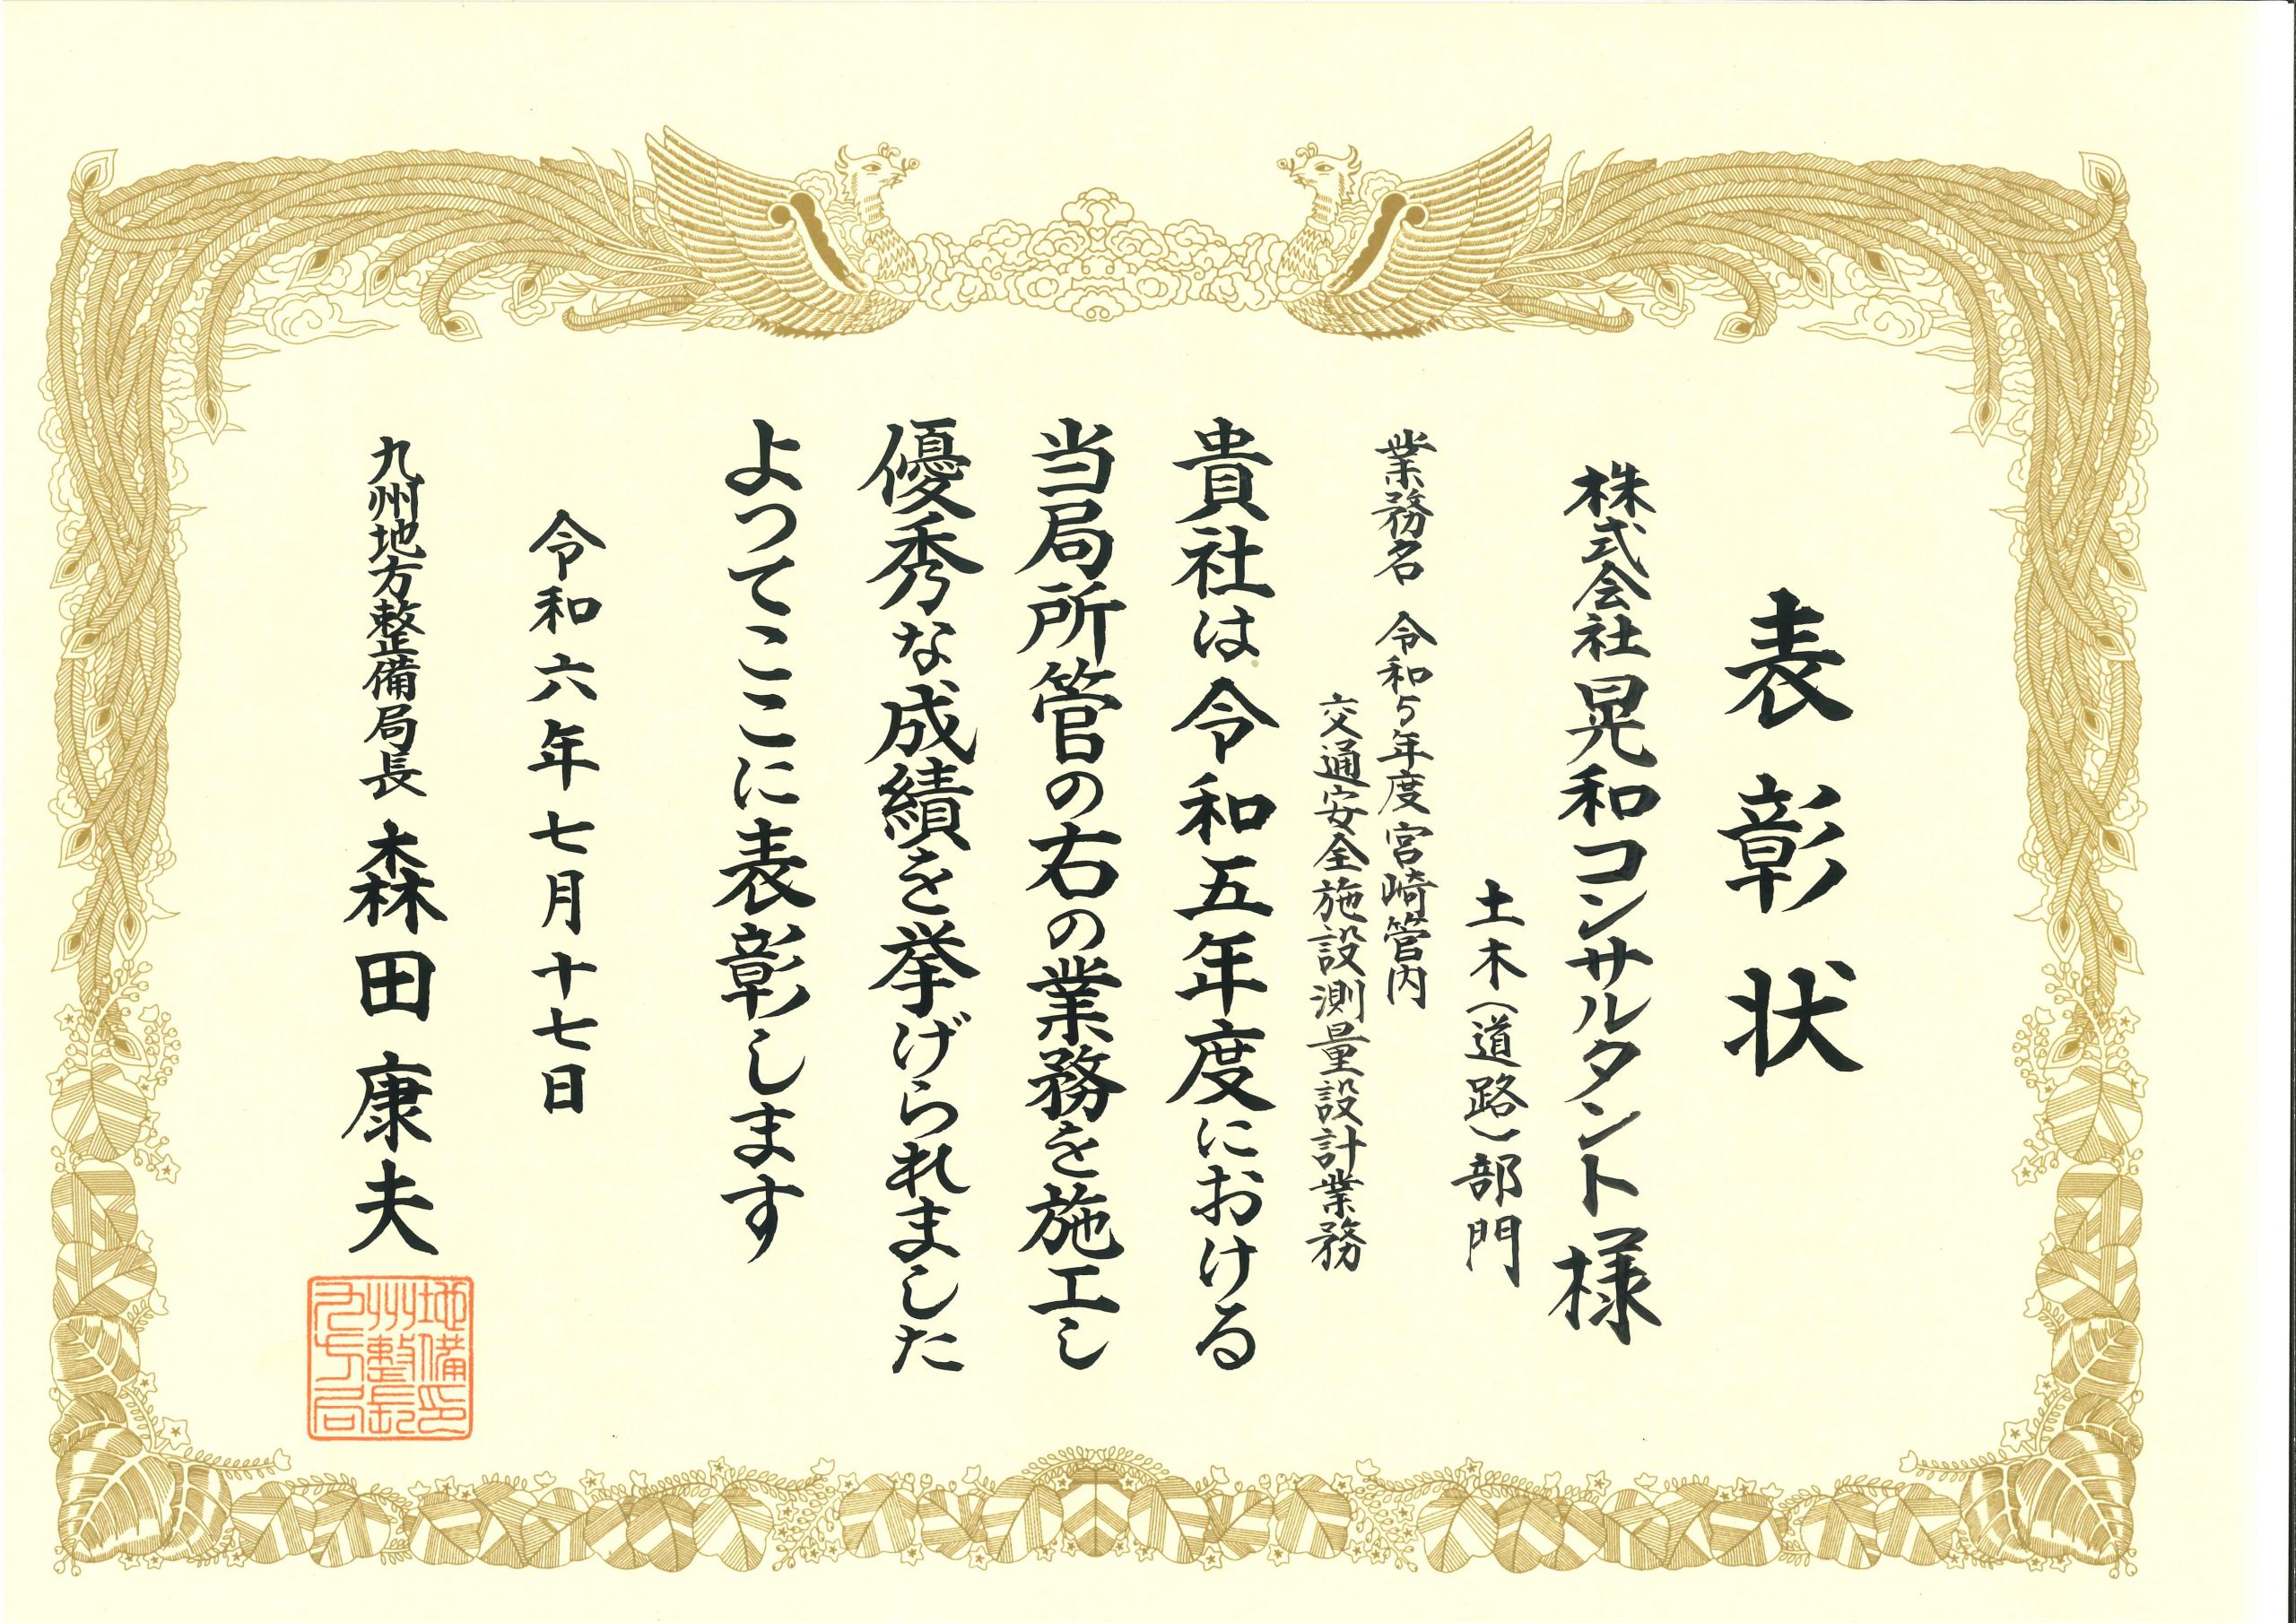 表彰状
株式会社晃和コンサルタント様
土木(道路)部門
業務名 令和5年度宮崎管内
交通安全施設測量設計業務
貴社は令和五年度における
当局所管の右の業務を施工し
優秀な成績を挙げられました
よつてここに表彰します
令和六年七月十七日
九州地方整備局長 森田康夫
地備印
州整長
九方局